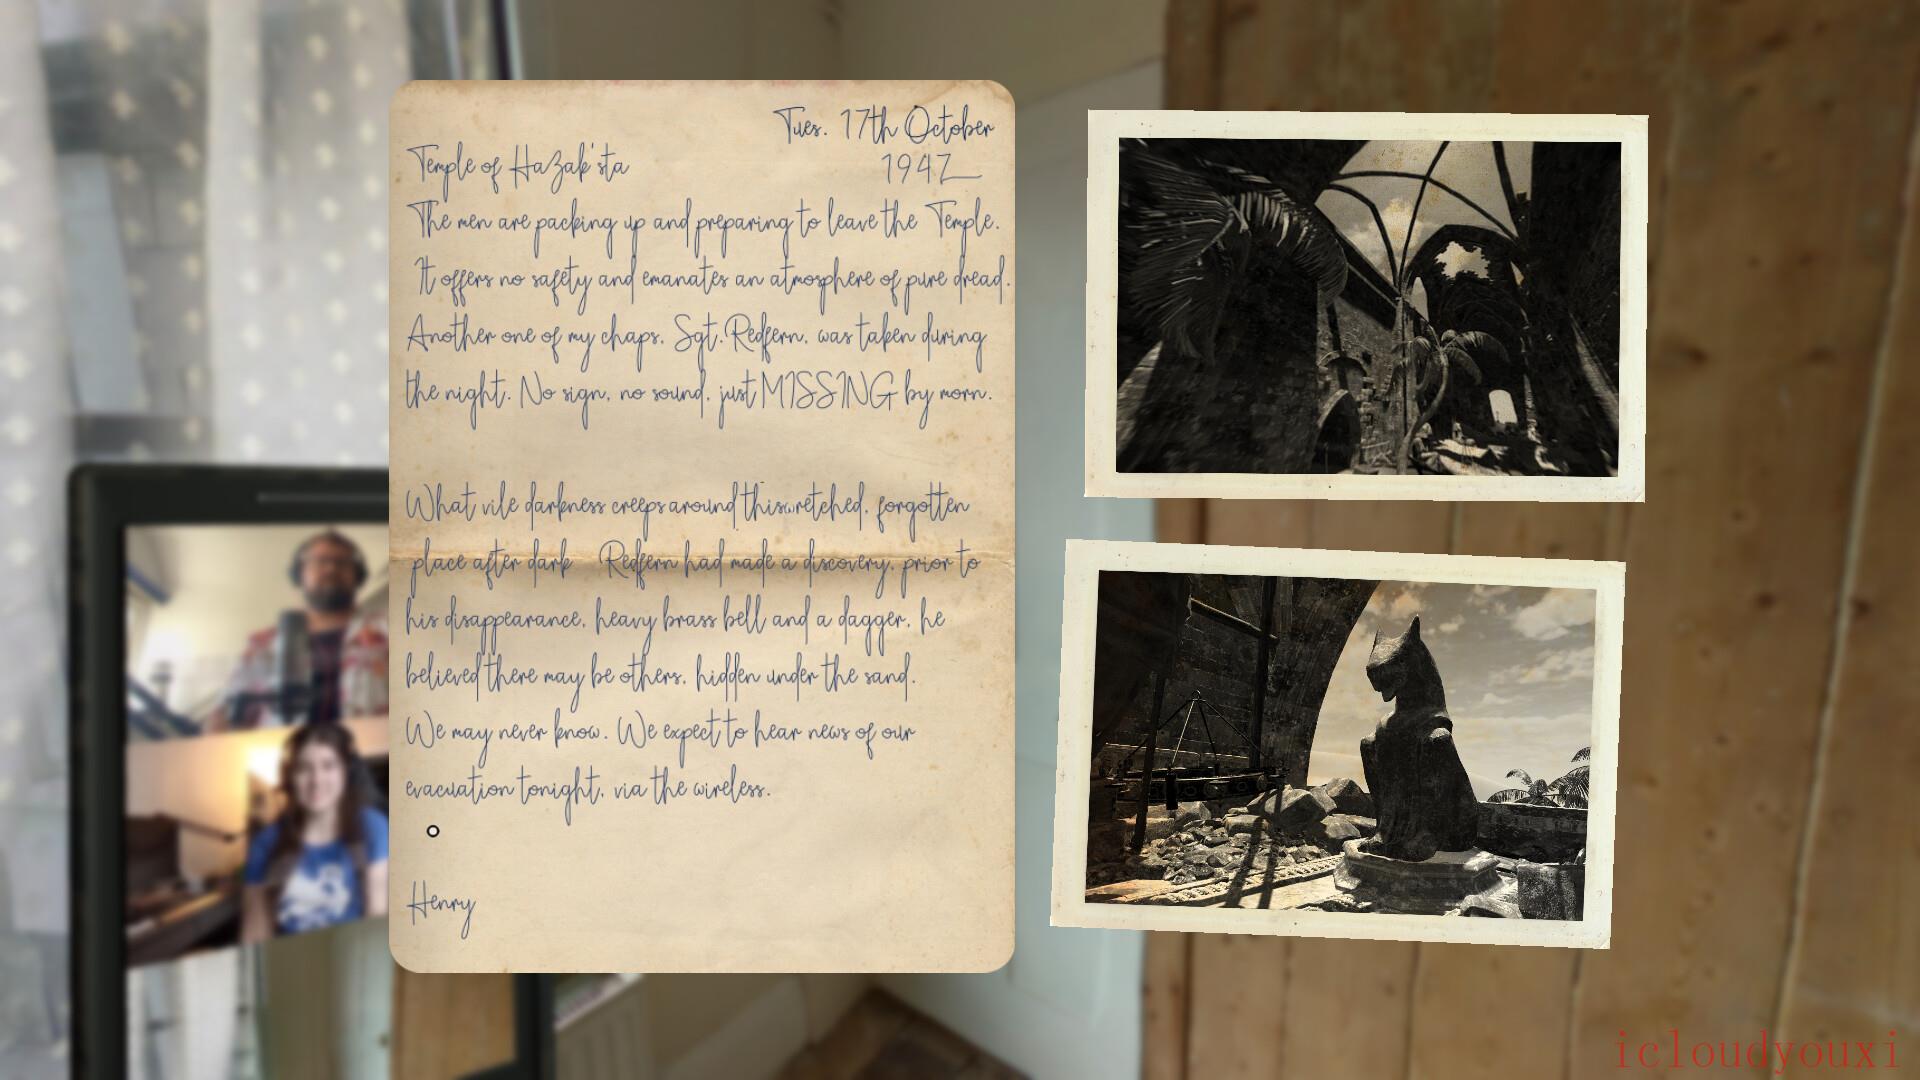 Tues. 17th October
Temple of HaZak'sta 1942
The men are packing up and preparing to leave the Temple.
It offers no safety and emanates an atmosphere of pure dread.
Another one of my chaps, Sgt. Redfern, was taken during
the night. No sign, no sound, just MISSING by morn.
What vile darkness creeps around this wretched, forgotten
place after dark Redfern had made a discovery, prior to
his disappearance, heavy brass bell and a dagger, he
believed there may be others, hidden under the sand.
We may never know. We expect to hear news of our
evacuation tonight, via the wireless.
Henry
icloudyouxi